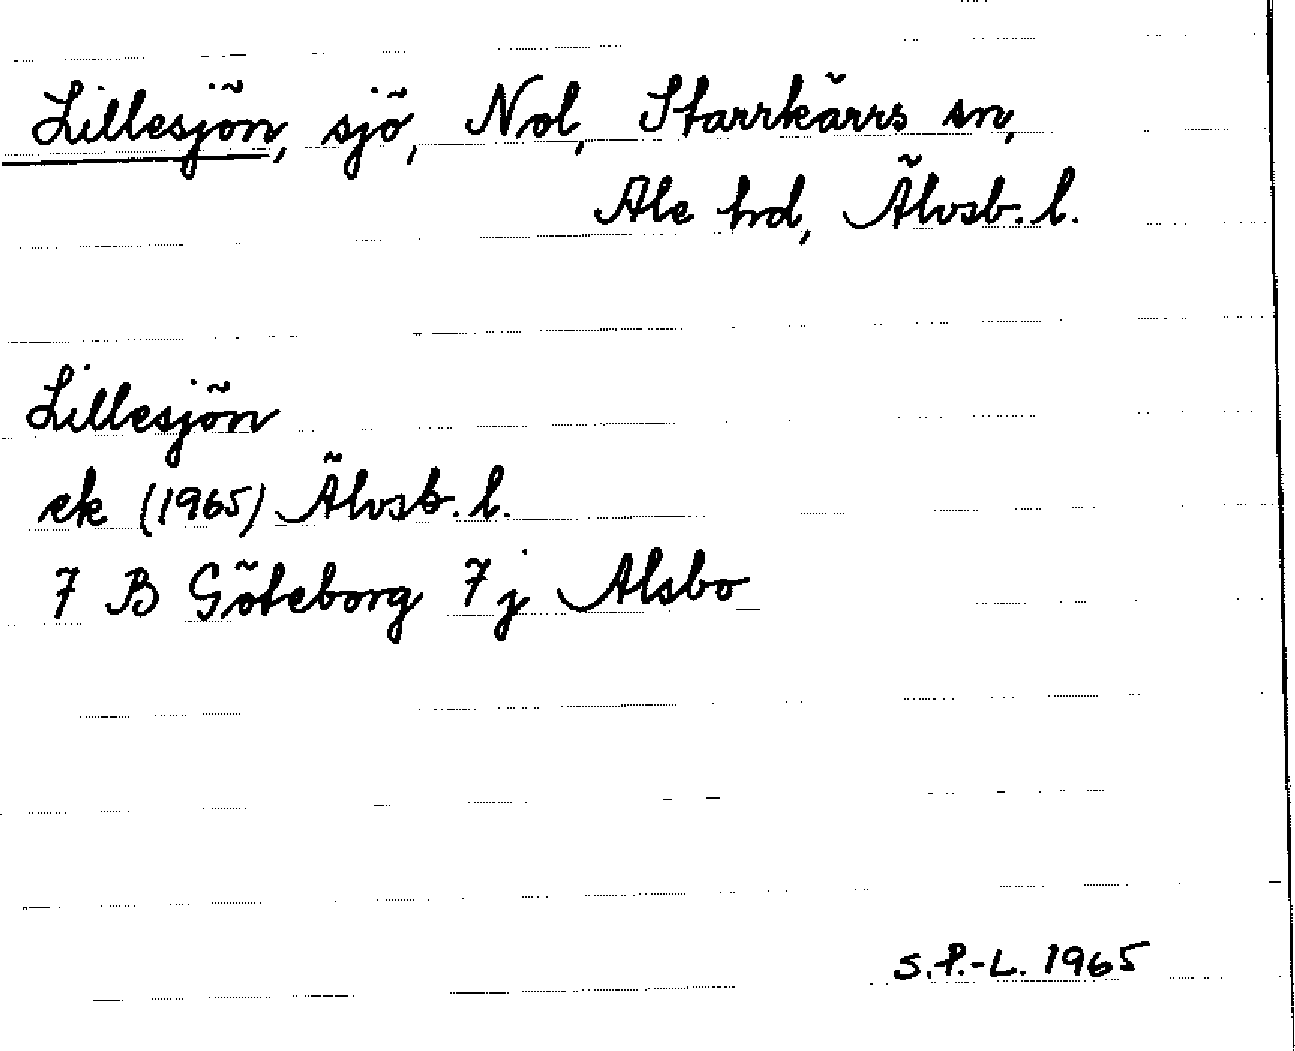 Lillesjön, sjö, Nol, Starrkärrs sn,
Ale hd, Älvsb. l.
Lillesjön
ek (1965) Älvsb. l.
7 B Göteborg 7 j Alsbo
S.P.-L. 1965